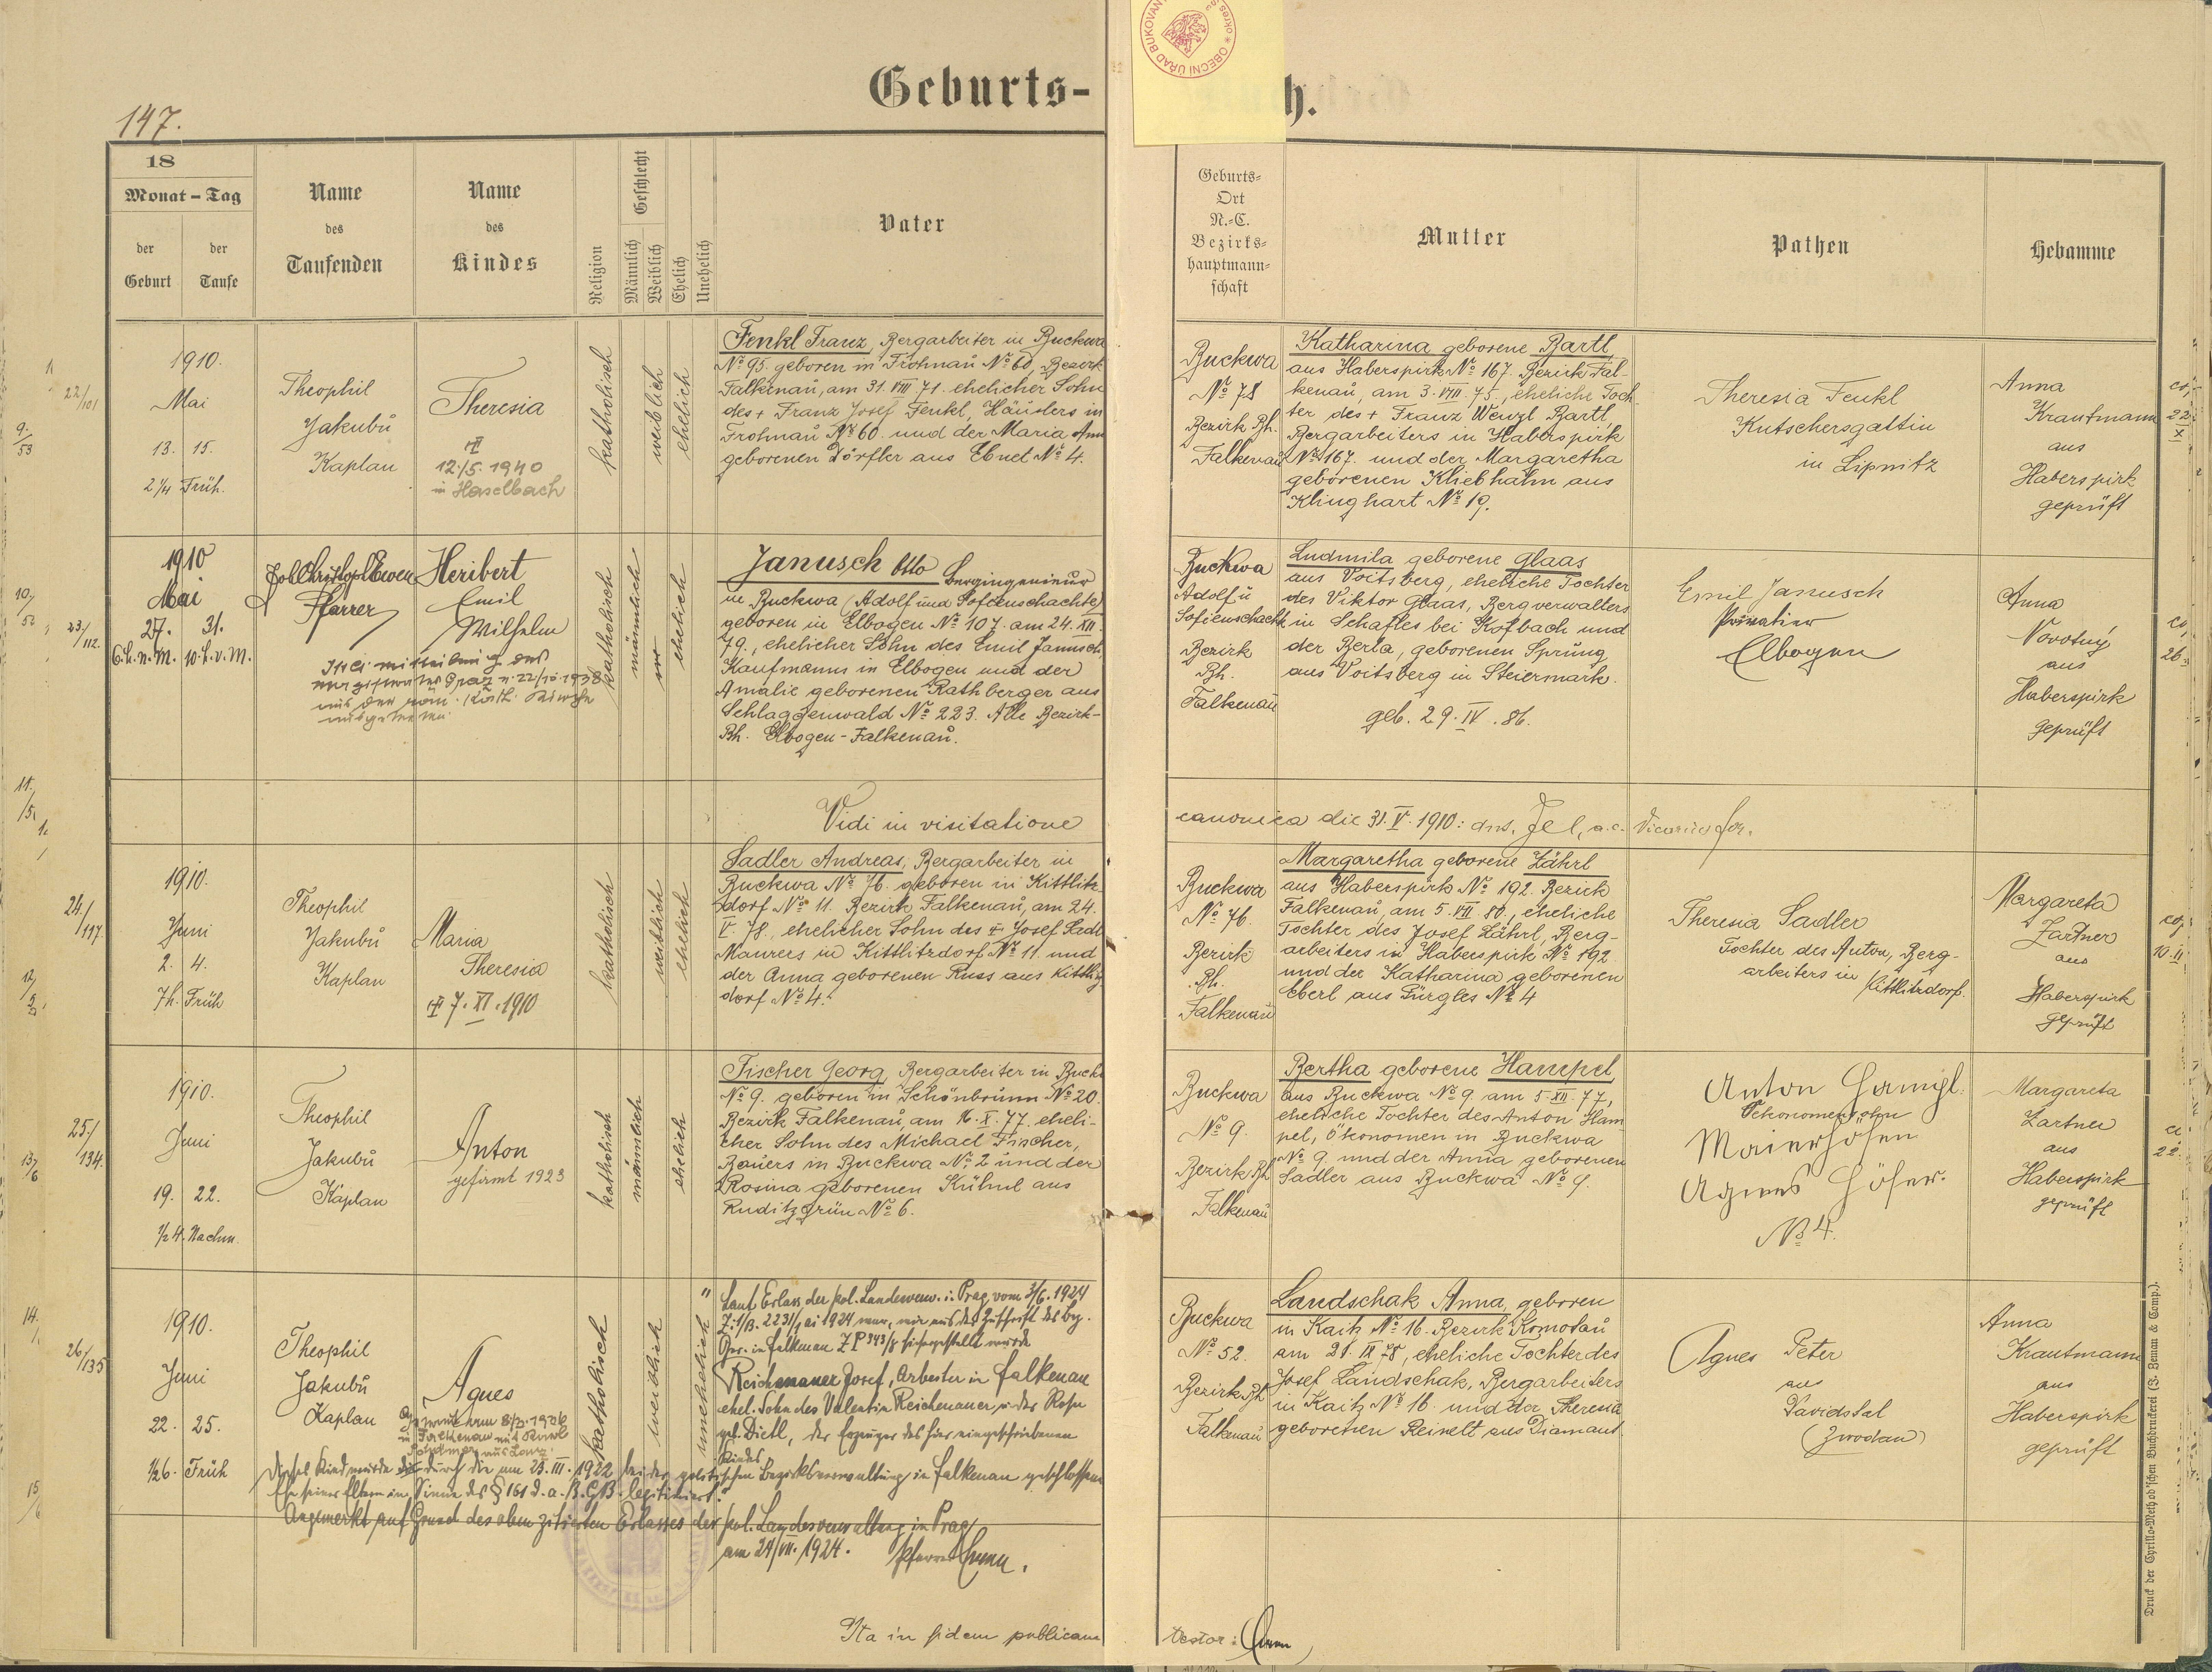 147.
Geburts-
h.
OBECNÍ ÚŘAD BUKOVANY
18
Monat - Tag
der Geburt
der Taufe
Name des Taufenden
Name des Kindes
Religion
Geschlecht
Männlich
Weiblich
Ehelich
Unehelich
Vater
Geburts-
Ort
N.-C.
Bezirks-
hauptmann-
schaft
Mutter
Pathen
Hebamme
22/101
1910.
Mai
13. 15.
2¼ Früh.
Theophil
Jakubů
Kaplan
Theresia
12./5. 1940
in Haselbach
katholisch
weiblich
ehelich
Fenkl Franz, Bergarbeiter in Buckwa
No 95. geboren in Frohnau No 60, Bezirk
Falkenau, am 31. VIII 71. ehelicher Sohn
des + Franz Josef Fenkl, Häuslers in
Frohnau No 60. und der Maria Anna
geborenen Dörfler aus Ebnet No 4.
Buckwa
No 78
Bezirk Bh.
Falkenau
Katharina geborene Bartl
aus Haberspirk No 167. Bezirk Fal-
kenau, am 3. VIII. 75., eheliche Toch-
ter des + Franz Wenzl Bartl,
Bergarbeiters in Haberspirk
No 167. und der Margaretha
geborenen Kliebhahn aus
Klinghart No 19.
Theresia Fenkl
Kutschersgattin
in Lipnitz
Anna
Krautmann
aus
Haberspirk
geprüft
23/112.
1910
Mai
27. 31.
6.h.n.M. 10.h.v.M.
Pfarrer
Heribert
Emil
Wilhelm
katholisch
männlich
ehelich
Janusch Otto Bergingenieur
in Buckwa (Adolf und Sofienschachte)
geboren in Elbogen No 107. am 24. XII
79., ehelicher Sohn des Emil Janusch,
Kaufmanns in Elbogen und der
Amalie geborenen Rathberger aus
Schlaggenwald No 223. Alle Bezirk-
Bh. Elbogen-Falkenau.
Buckwa
Adolf u
Sofienschacht
Bezirk
Bh.
Falkenau
Ludmila geborene Glaas
aus Voitsberg, eheliche Tochter
des Viktor Glaas, Bergverwalters
in Schaflos bei Köflach und
der Berta, geborenen Sprung
aus Voitsberg in Steiermark.
geb. 29. IV. 86.
Emil Janusch
Privatier
Elbogen
Anna
Novotný
aus
Haberspirk
geprüft
Vidi in visitatione
canonica die 31. V. 1910:
24./117.
1910.
Juni
2. 4.
7h. Früh
Theophil
Jakubů
Kaplan
Maria
Theresia
7. XI. 1910
katholisch
weiblich
ehelich
Sadler Andreas, Bergarbeiter in
Buckwa No 76. geboren in Kittlitz-
dorf No 11. Bezirk Falkenau, am 24.
V. 78., ehelicher Sohn des + Josef Sadler
Maurers in Kittlitzdorf No 11. und
der Anna geborenen Russ aus Kittlitz-
dorf No 4.
Buckwa
No 76.
Bezirk
Bh.
Falkenau
Margaretha geborene Zährl
aus Haberspirk No 192. Bezirk
Falkenau, am 5. VII. 80., eheliche
Tochter des Josef Zährl, Berg-
arbeiters in Haberspirk No 192
und der Katharina geborenen
Eberl aus Gürgles No 4
Theresia Sadler
Tochter des Anton, Berg-
arbeiters in Kittlitzdorf.
Margareta
Zartner
aus
Haberspirk
geprüft
25./134.
1910.
Juni
19. 22.
½4. Nachm.
Theophil
Jakubů
Kaplan
Anton
gefirmt 1923
katholisch
männlich
ehelich
Fischer Georg, Bergarbeiter in Buckwa
No 9. geboren in Schönbrunn No 20.
Bezirk Falkenau, am 16. X. 77. eheli-
cher Sohn des Michael Fischer,
Bauers in Buckwa No 2 und der
Rosina geborenen Kühnl aus
Ruditzgrün No 6.
Buckwa
No 9.
Bezirk Bh
Falkenau
Bertha geborene Hampel
aus Buckwa No 9. am 5. XII. 77,
eheliche Tochter des Anton Ham-
pel, Ökonomen in Buckwa
No 9 und der Anna geborenen
Sadler aus Buckwa No 9.
Anton
Oekonomensohn
Maierhöfen
Agnes Höfer.
No 4.
Margareta
Zartner
aus
Haberspirk
geprüft
26/135
1910.
Juni
22. 25.
½6. Früh
Theophil
Jakubů
Kaplan
Agnes
katholisch
weiblich
unehelich
Laut Erlass der pol. Landesverw. i. Prag vom 3/6. 1924
Reichenauer Josef, Arbeiter in Falkenau
ehel. Sohn des Valentin Reichenauer u. der Rosa
geb. Dietl, der Erzeuger des hier eingeschriebenen
Kindes.
Dieses Kind wurde durch die am 25. III. 1922 bei der politischen Bezirksverwaltung in Falkenau geschlossene
Ehe seiner Eltern im Sinne des § 161 d. a. B. G. B. legitimiert."
Angemerkt auf Grund des oben zitierten Erlasses der pol. Landesverwaltung in Prag
am 24/VII. 1924.
Buckwa
No 52.
Bezirk Bh
Falkenau
Landschak Anna, geboren
in Kaitz No 16. Bezirk Komotau
am 21. IX 78, eheliche Tochter des
Josef Landschak, Bergarbeiters
in Kaitz No 16. und der Theresia
geborenen Reinelt aus Diamant
Agnes Peter
aus
Davidstal
(Zwodau)
Anna
Krautmann
aus
Haberspirk
geprüft
Ita in fidem publicam
testor:
Druck der Cyrillo-Method'schen Buchdruckerei (J. Zeman & Comp.).